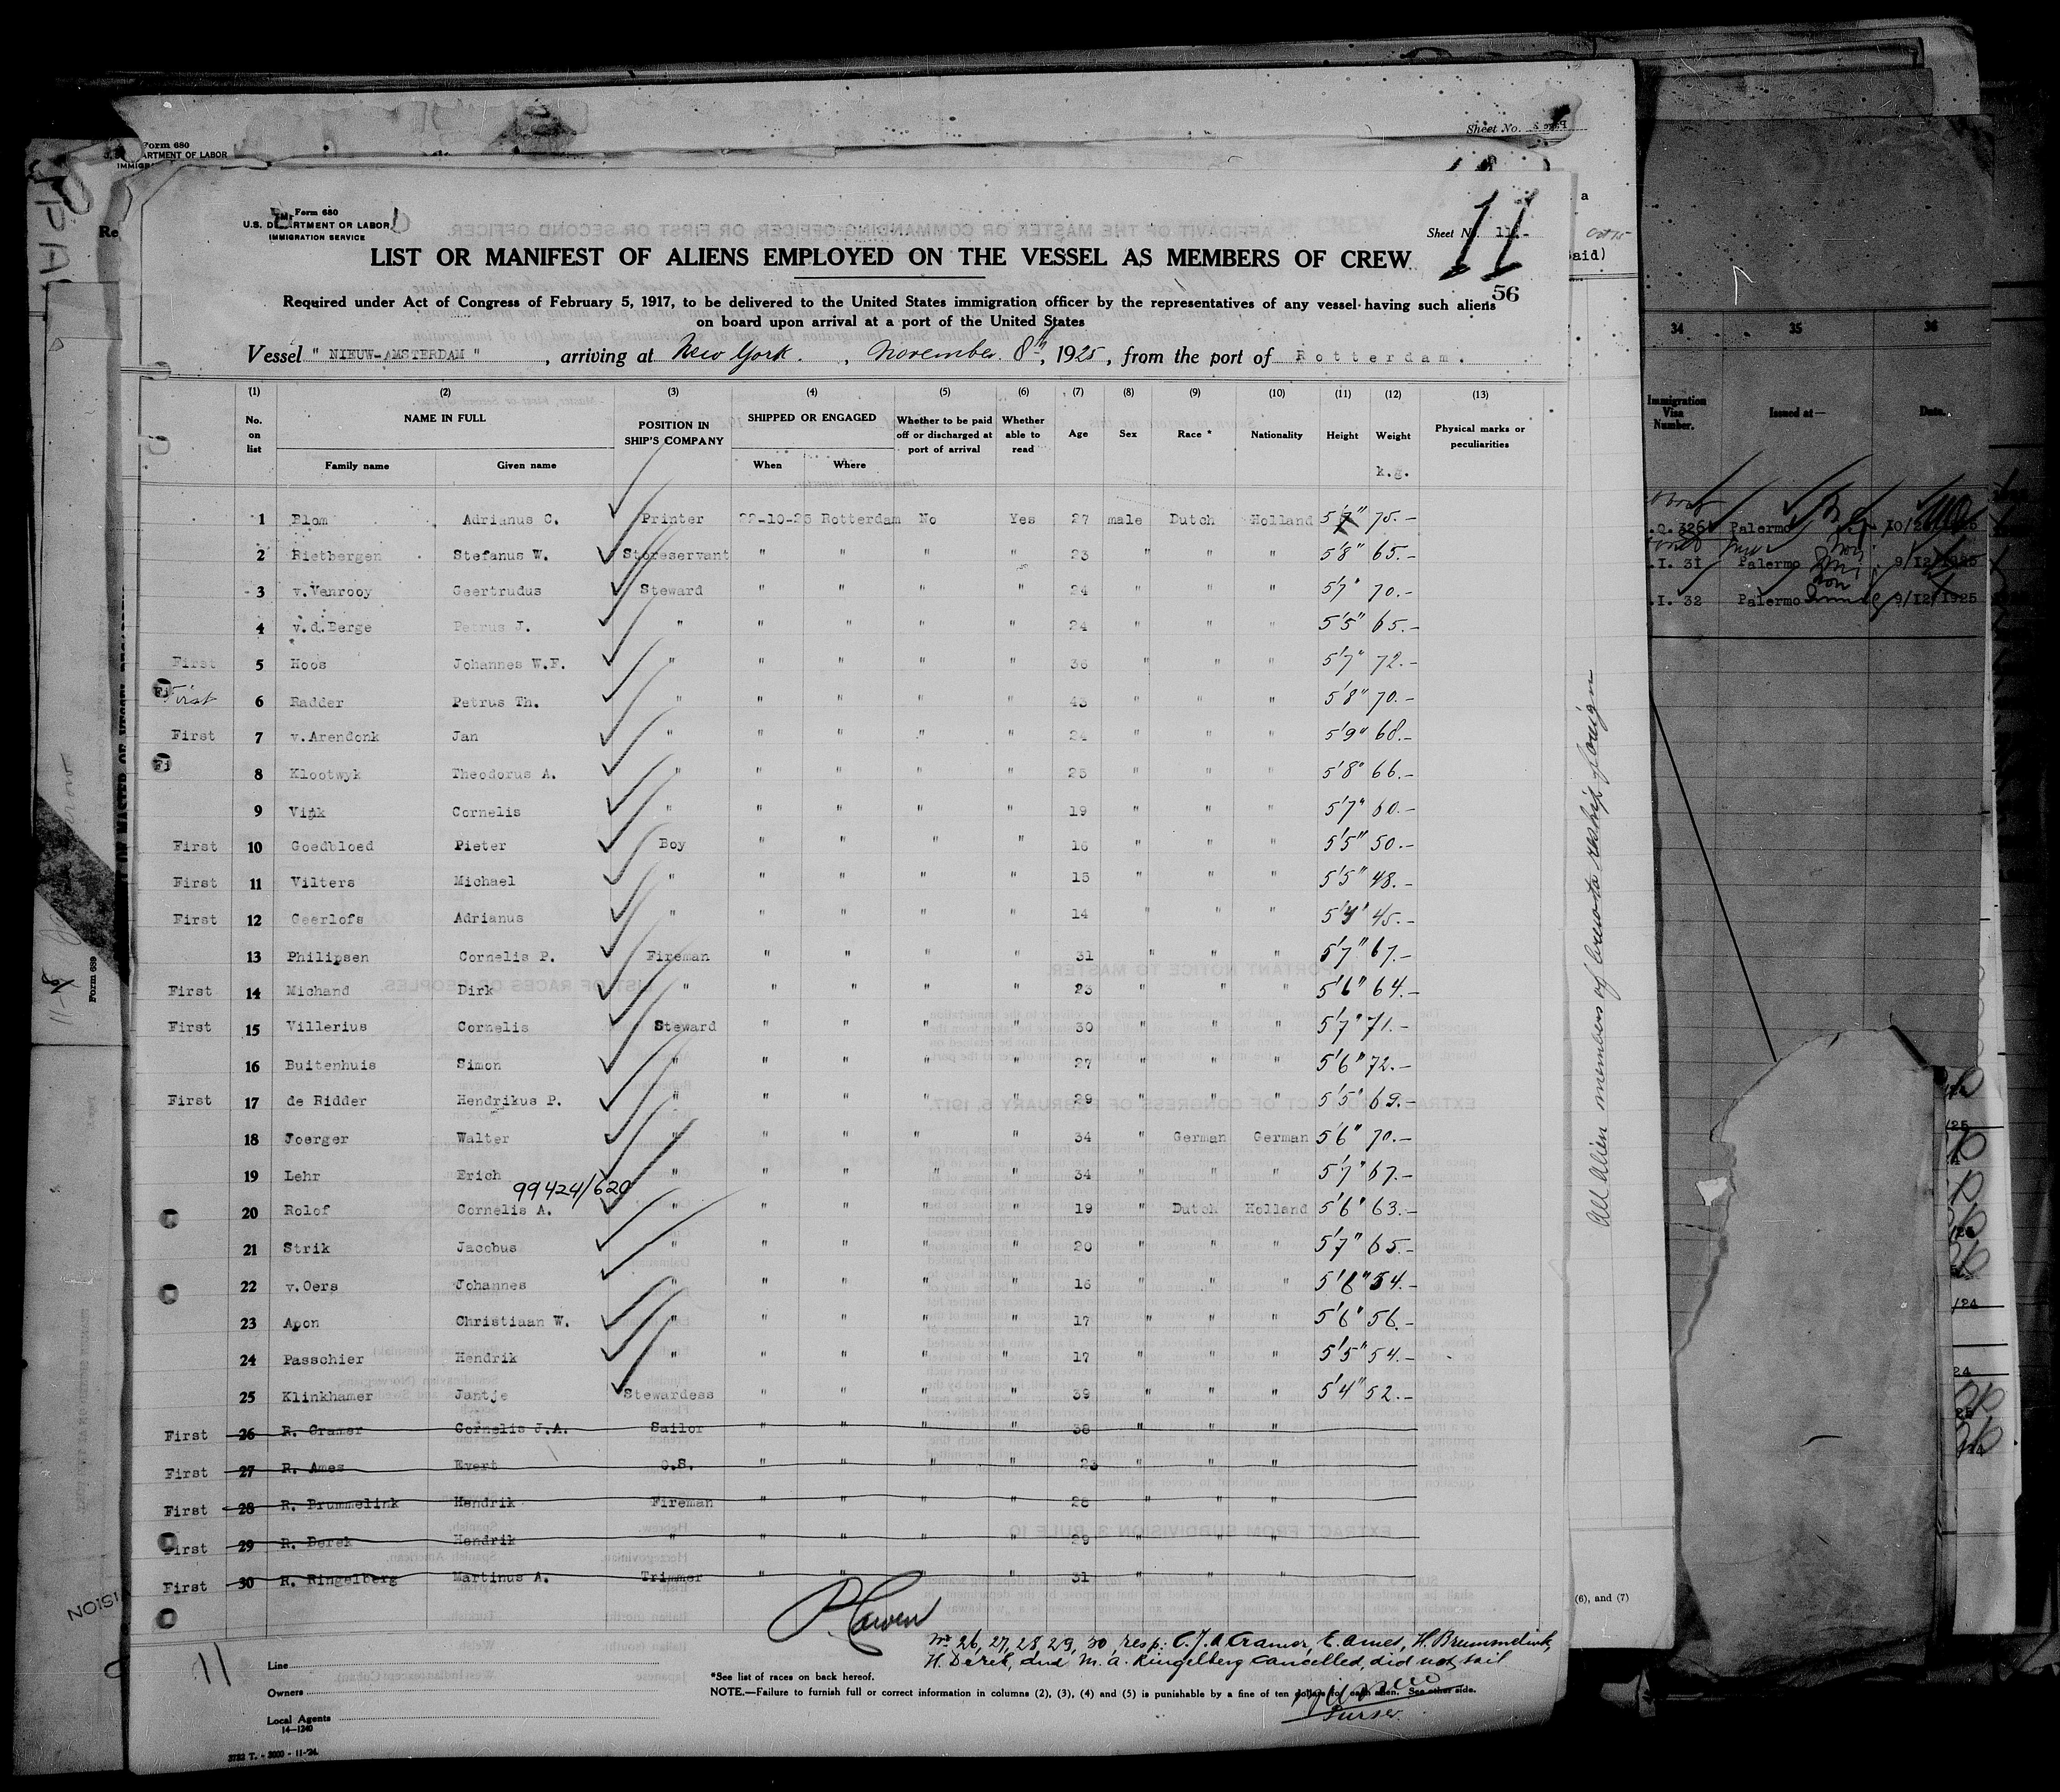 Sheet No.
Form 680
ARTMENT OF LABOR
Form 680
U.S. DEPARTMENT OF LABOR
IMMIGRATION SERVICE
Sheet No. 11-
11
56
LIST OR MANIFEST OF ALIENS EMPLOYED ON THE VESSEL AS MEMBERS OF CREW
Required under Act of Congress of February 5, 1917, to be delivered to the United States immigration officer by the representatives of any vessel having such aliens
on board upon arrival at a port of the United States
Vessel " NIEUW-AMSTERDAM ", arriving at New York. , November 8th, 1925, from the port of Rotterdam.
(1) (2) (3) (4) (5) (6) (7) (8) (9) (10) (11) (12) (13)
No. on list NAME IN FULL POSITION IN SHIP'S COMPANY SHIPPED OR ENGAGED Whether to be paid off or discharged at port of arrival Whether able to read Age Sex Race * Nationality Height Weight Physical marks or peculiarities
Family name Given name When Where k.g.
1 Blom Adrianus C. Printer 22-10-25 Rotterdam No Yes 27 male Dutch Holland 5'7" 75.-
2 Rietbergen Stefanus W. Storeservant " " " " 23 " " " 5'8" 65.-
3 v.Vanrooy Geertrudus Steward " " " " 24 " " " 5'7" 70.-
4 v.d.Berge Petrus J. " " " " " 24 " " " 5'5" 65.-
First 5 Hoos Johannes W.F. " " " " " 36 " " " 5'7" 72.-
First 6 Radder Petrus Th. " " " " " 43 " " " 5'8" 70.-
First 7 v.Arendonk Jan " " " " " 24 " " " 5'9" 68.-
8 Klootwyk Theodorus A. " " " " " 25 " " " 5'8" 66.-
9 Vink Cornelis " " " " " 19 " " " 5'7" 60.-
First 10 Goedbloed Pieter Boy " " " " 16 " " " 5'5" 50.-
First 11 Vilters Michael " " " " " 15 " " " 5'5" 48.-
First 12 Geerlofs Adrianus " " " " " 14 " " " 5'4" 45.-
13 Philipsen Cornelis P. Fireman " " " " 31 " " " 5'7" 67.-
First 14 Michand Dirk " " " " " 23 " " " 5'6" 64.-
First 15 Villerius Cornelis Steward " " " " 30 " " " 5'7" 71.-
16 Buitenhuis Simon " " " " " 27 " " " 5'6" 72.-
First 17 de Ridder Hendrikus P. " " " " " 29 " " " 5'5" 69.-
18 Joerger Walter " " " " " 34 " German German 5'6" 70.-
19 Lehr Erich " " " " " 34 " " " 5'7" 67.-
99424/620
20 Rolof Cornelis A. " " " " " 19 " Dutch Holland 5'6" 63.-
21 Strik Jacobus " " " " " 20 " " " 5'7" 65.-
22 v.Oers Johannes " " " " " 16 " " " 5'6" 54.-
23 Apon Christiaan W. " " " " " 17 " " " 5'6" 56.-
24 Passchier Hendrik " " " " " 17 " " " 5'5" 54.-
25 Klinkhamer Jantje Stewardess " " " " 39 " " " 5'4" 52.-
First 26 R. Cramer Cornelis J.A. Sailor " " " " 38 " " "
First 27 R. Ames Evert O.S. " " " " 23 " " "
First 28 R. Brummelink Hendrik Fireman " " " " 28 " " "
First 29 R. Derek Hendrik " " " " " 29 " " "
First 30 R. Ringelberg Martinus A. Trimmer " " " " 31 " " "
Nr 26, 27, 28, 29, 30 resp: C.J.A. Cramer, E. Ames, H. Brummelink,
H. Derek, and M.A. Ringelberg cancelled, did not sail
Purser.
11
Line
Owners
Local Agents
14-1240
3732 T. - 3000 - 11-'24.
*See list of races on back hereof.
NOTE.—Failure to furnish full or correct information in columns (2), (3), (4) and (5) is punishable by a fine of ten dollars for each alien. See other side.
All Alien members of crew to reship foreign
(6), and (7)
aid)
34 35 36
Immigration Visa Number. Issued at— Date.
326 Palermo
I. 31 Palermo 9/12/1925
I. 32 Palermo 9/12/1925
Form 689